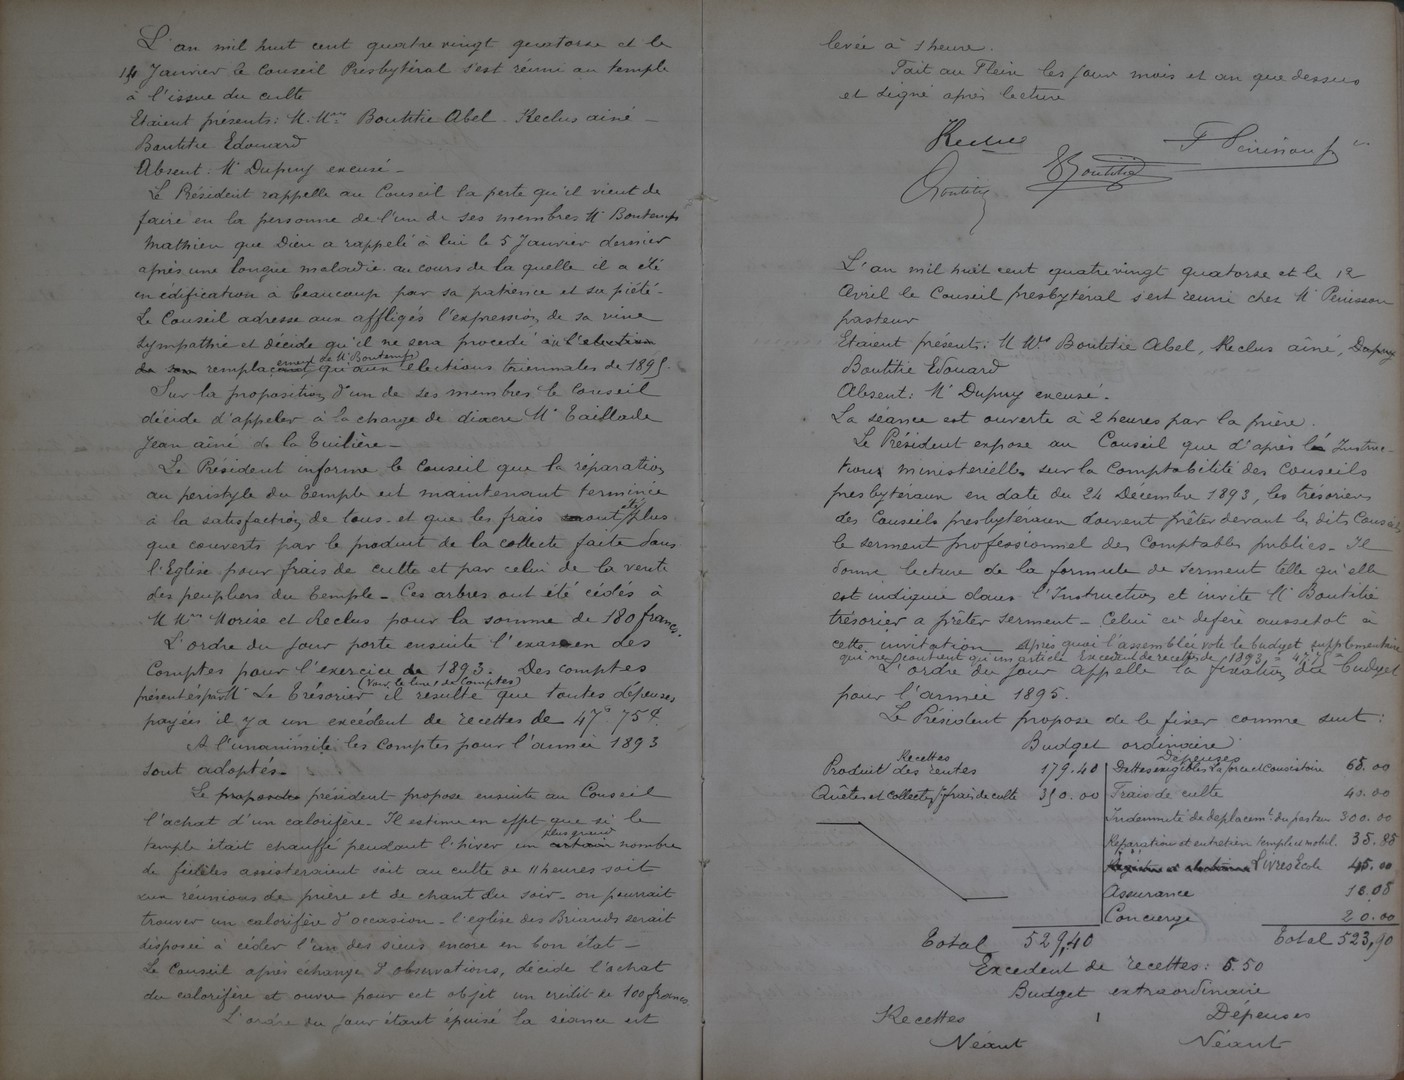 L'an mil huit cent quatre vingt quatorze et le
14 Janvier le Conseil Presbytéral s'est réuni au temple
à l'issue du culte
Etaient présents: M.Mrs Boutitie Abel - Reclus ainé -
Boutitie Edouard
Absent: Mr Dupuy excusé -
Le Président rappelle au Conseil la perte qu'il vient de
faire en la personne de l'un de ses membres Mr Bontemps
Mathieu que Dieu a rappelé à lui le 5 Janvier dernier
après une longue maladie au cours de la quelle il a été
en édification à beaucoup par sa patience et sa piété -
Le Conseil adresse aux affligés l'expression de sa vive
sympathie et décide qu'il ne sera procédé au l'election
du son remplacement de Mr Bontemps qu'aux élections triennales de 1895.
Sur la proposition d'un de ses membres le Conseil
décide d'appeler à la charge de diacre Mr Taillade
Jean aîné de la Tuilière -
Le Président informe le Conseil que la réparation
au peristyle du temple est maintenant terminée
à la satisfaction de tous - et que les frais ont été plus
que couverts par le produit de la collecte faite dans
l'Eglise pour frais de culte et par celui de la vente
des peupliers du temple - Ces arbres ont été cédés à
M Mrs Morize et Reclus pour la somme de 180 francs.
L'ordre du jour porte ensuite l'examen des
Comptes pour l'exercice de 1893. Des comptes
présentés par Mr Le Trésorier (Voir le livre des Comptes) il résulte que toutes dépenses
payées il y a un excédent de recettes de 47f 75c.
A l'unanimité les Comptes pour l'année 1893
sont adoptés -
Le président propose ensuite au Conseil
l'achat d'un calorifère - Il estime en effet que si le
temple était chauffé pendant l'hiver un certain plus grand nombre
de fidèles assisteraient soit au culte de 11 heures soit
aux réunions de prière et de chant du soir - on pourrait
trouver un calorifère d'occasion - l'eglise des Briands serait
disposée à céder l'un des siens encore en bon état -
Le Conseil après échange d'observations, décide l'achat
du calorifère et ouvre pour cet objet un crédit de 100 francs.
L'ordre du jour étant épuisé la séance est
levée à 1 heure.
Fait au Fleix les jour mois et an que dessus
et signé après lecture
Reclus
F Périssou p
Boutitie
E Boutitie
L'an mil huit cent quatre vingt quatorze et le 12
Avril le Conseil presbytéral s'est réuni chez Mr Perissou
pasteur
Etaient présents: M Mrs Boutitie Abel, Reclus aîné, Dupuy
Boutitie Edouard
Absent: Mr Dupuy excusé.
La séance est ouverte à 2 heures par la prière.
Le Président expose au Conseil que d'après les Instruc-
tions ministerielles sur la Comptabilité des Conseils
presbytéraux en date du 24 Décembre 1893, les trésoriers
des Conseils presbytéraux doivent prêter devant les dits Conseils
le serment professionnel des Comptables publics - Il
donne lecture de la formule de serment telle qu'elle
est indiquée dans l'Instruction et invite Mr Boutitié
trésorier a prêter serment - Celui ci défère aussitot à
cette invitation - Après quoi l'assemblée vote le budget supplémentaire
qui ne contient qu'un article Excedent de recettes de 1893 = 47,75 =
L'ordre du jour appelle la fixation du Budget
pour l'année 1895.
Le Président propose de le fixer comme suit:
Budget ordinaire
Recettes Dépenses
Produit des rentes 179.40 Dettes exigibles Laforce et Consistoire 65.00
Quêtes et Collectes pr frais de culte 350.00 Frais de culte 40.00
Indemnité de déplacemt du pasteur 300.00
Réparation et entretien temple et mobil. 35.85
Livres Ecole 45.00
Assurance 18.05
Concierge 20.00
Total 529,40 Total 523,90
Excedent de recettes: 5.50
Budget extraordinaire
Recettes Dépenses
Néant Néant